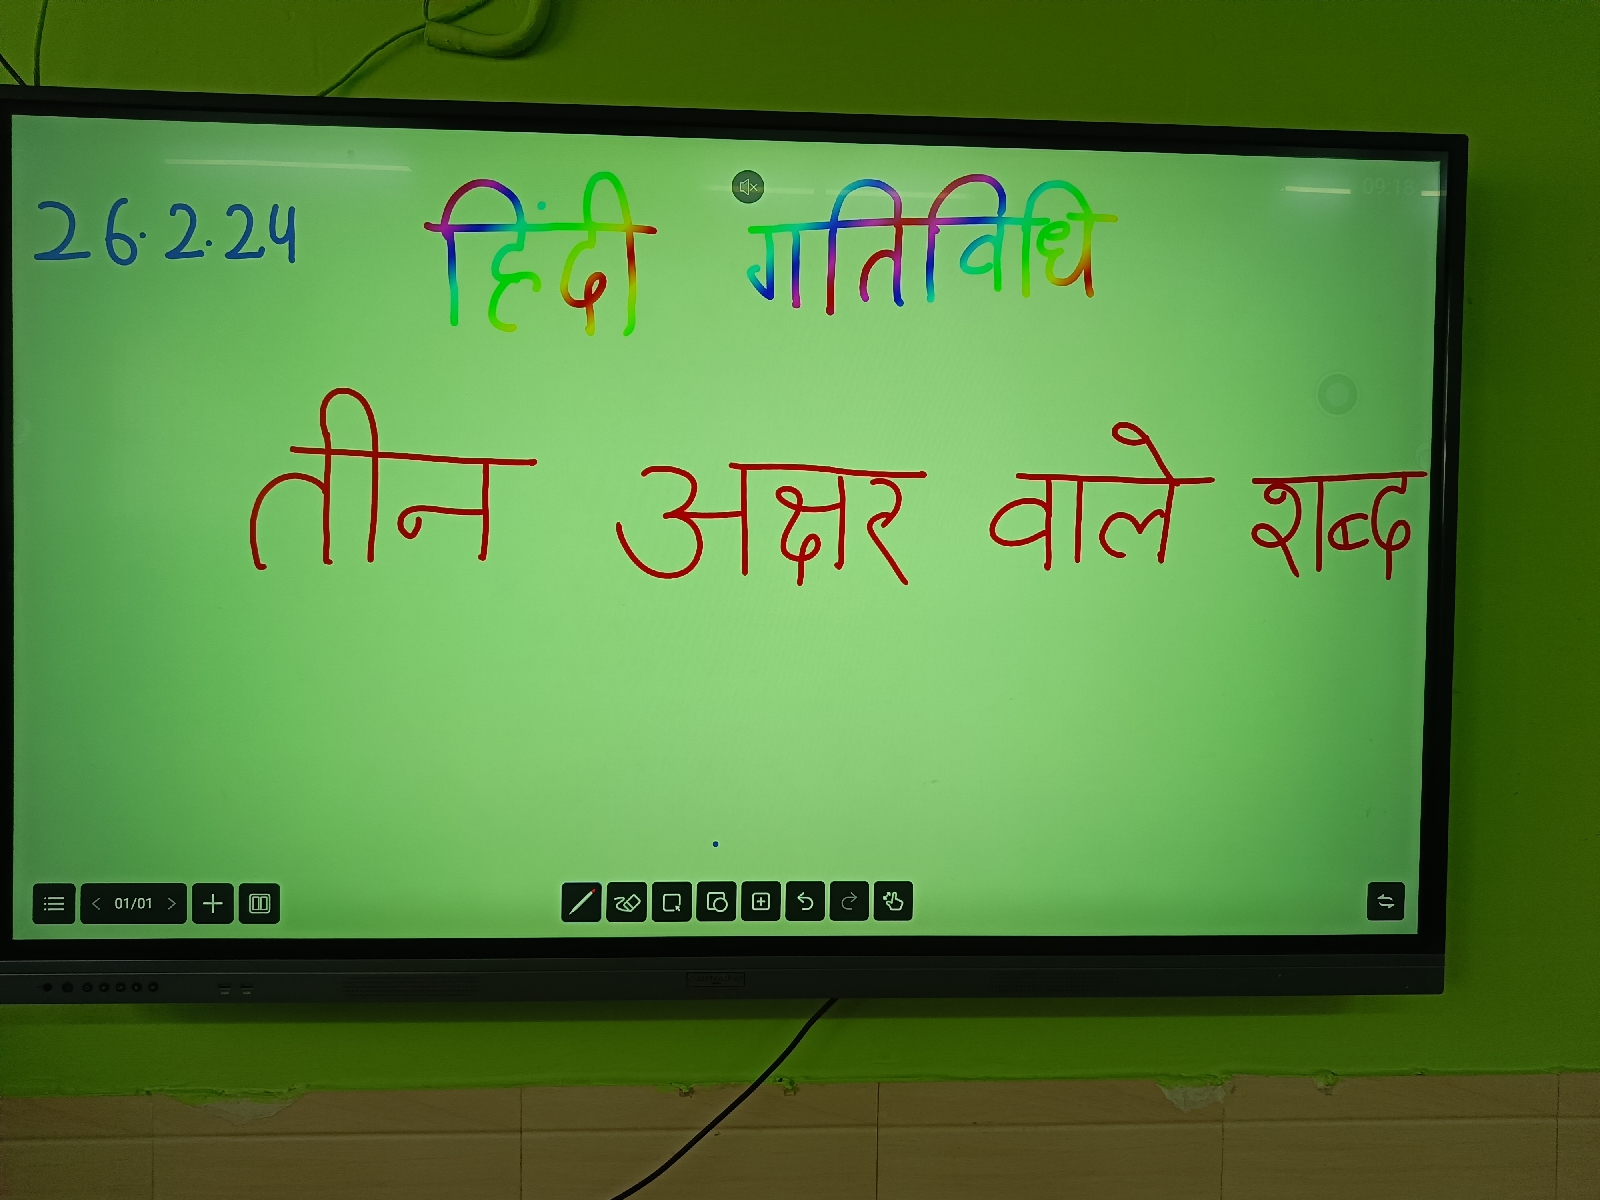 26.2.24 हिंदी गतिविधि
09:18
तीन अक्षर वाले शब्द
01/01